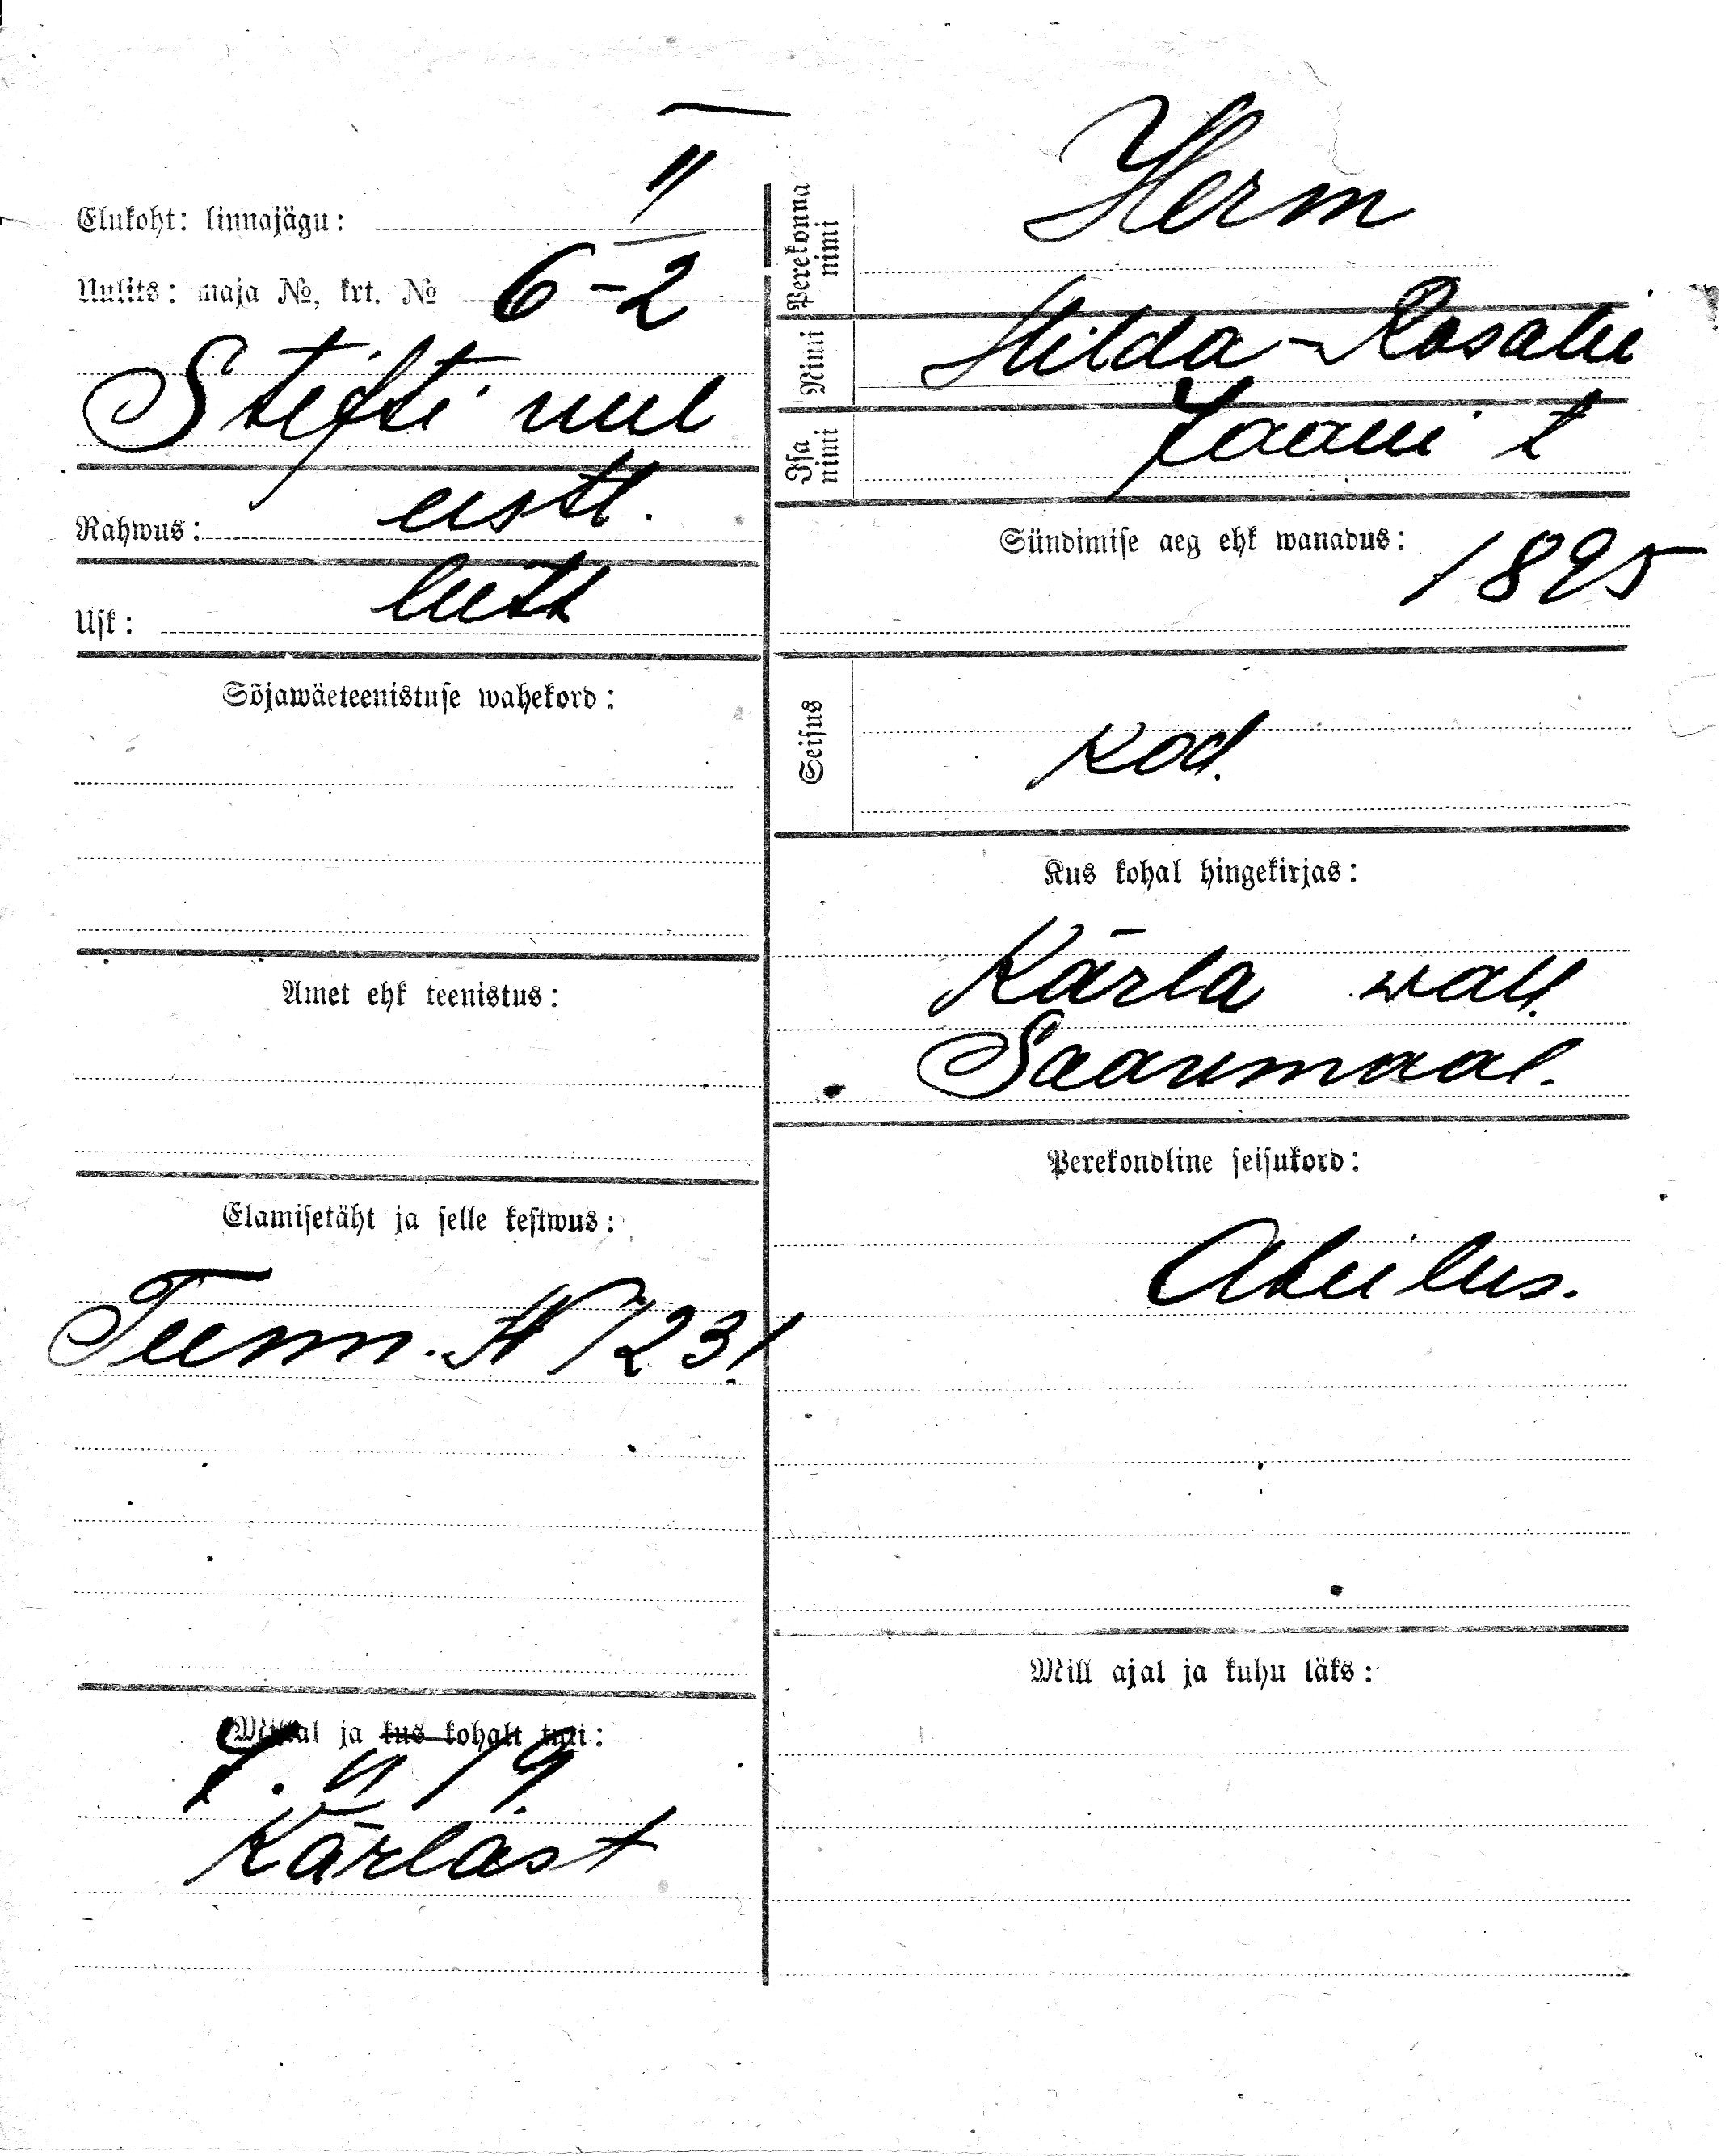 II
Elukoht: linnajagu:
Uulits: maja №, krt. № 6-2
Stifti uul
Rahwus: eestl.
Usk: lutt
Sõjawäeteenistuse wahekord:
Amet ehk teenistus:
Elamisetäht ja selle kestwus:
Teenn. № 1231
Millal ja kus kohalt tuli:
7. II 19.
Kärlast
Perekonna nimi
Herm
Nimi
Hilda-Rosalie
Isa nimi
Jaani t
Sündimise aeg ehk wanadus: 1895
Seisus
kod.
Kus kohal hingekirjas:
Kärla wall.
Saaremaal.
Perekondline seisukord:
Abielus.
Mill ajal ja kuhu läks: